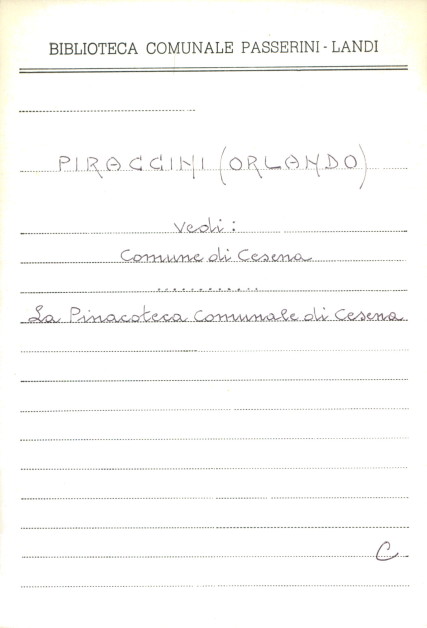 BIBLIOTECA COMUNALE PASSERINI - LANDI
PIRACCINI (ORLANDO)
Vedi:
Comune di Cesena
...........
La Pinacoteca Comunale di Cesena
C